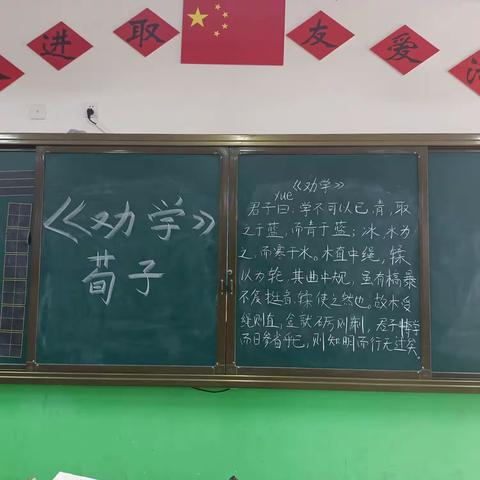 进取 友爱
《劝学》
荀子
《劝学》
yue
君子曰：学不可以已，青，取
之于蓝，而青于蓝；冰 水为
之，而寒于水。木直中绳，輮
以为轮，其曲中规，虽有槁暴
不复挺者，輮使之然也。故木受
绳则直，金就砺则利，君子博学
而日参省乎己，则知明而行无过矣